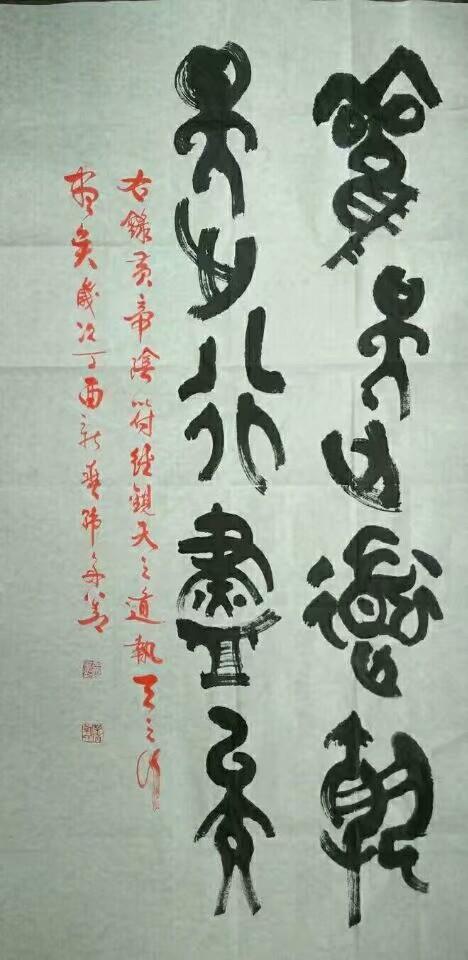 觀天之道執
天之行盡矣
右錄黃帝陰符經觀天之道執天之行
盡矣歲次丁酉新春